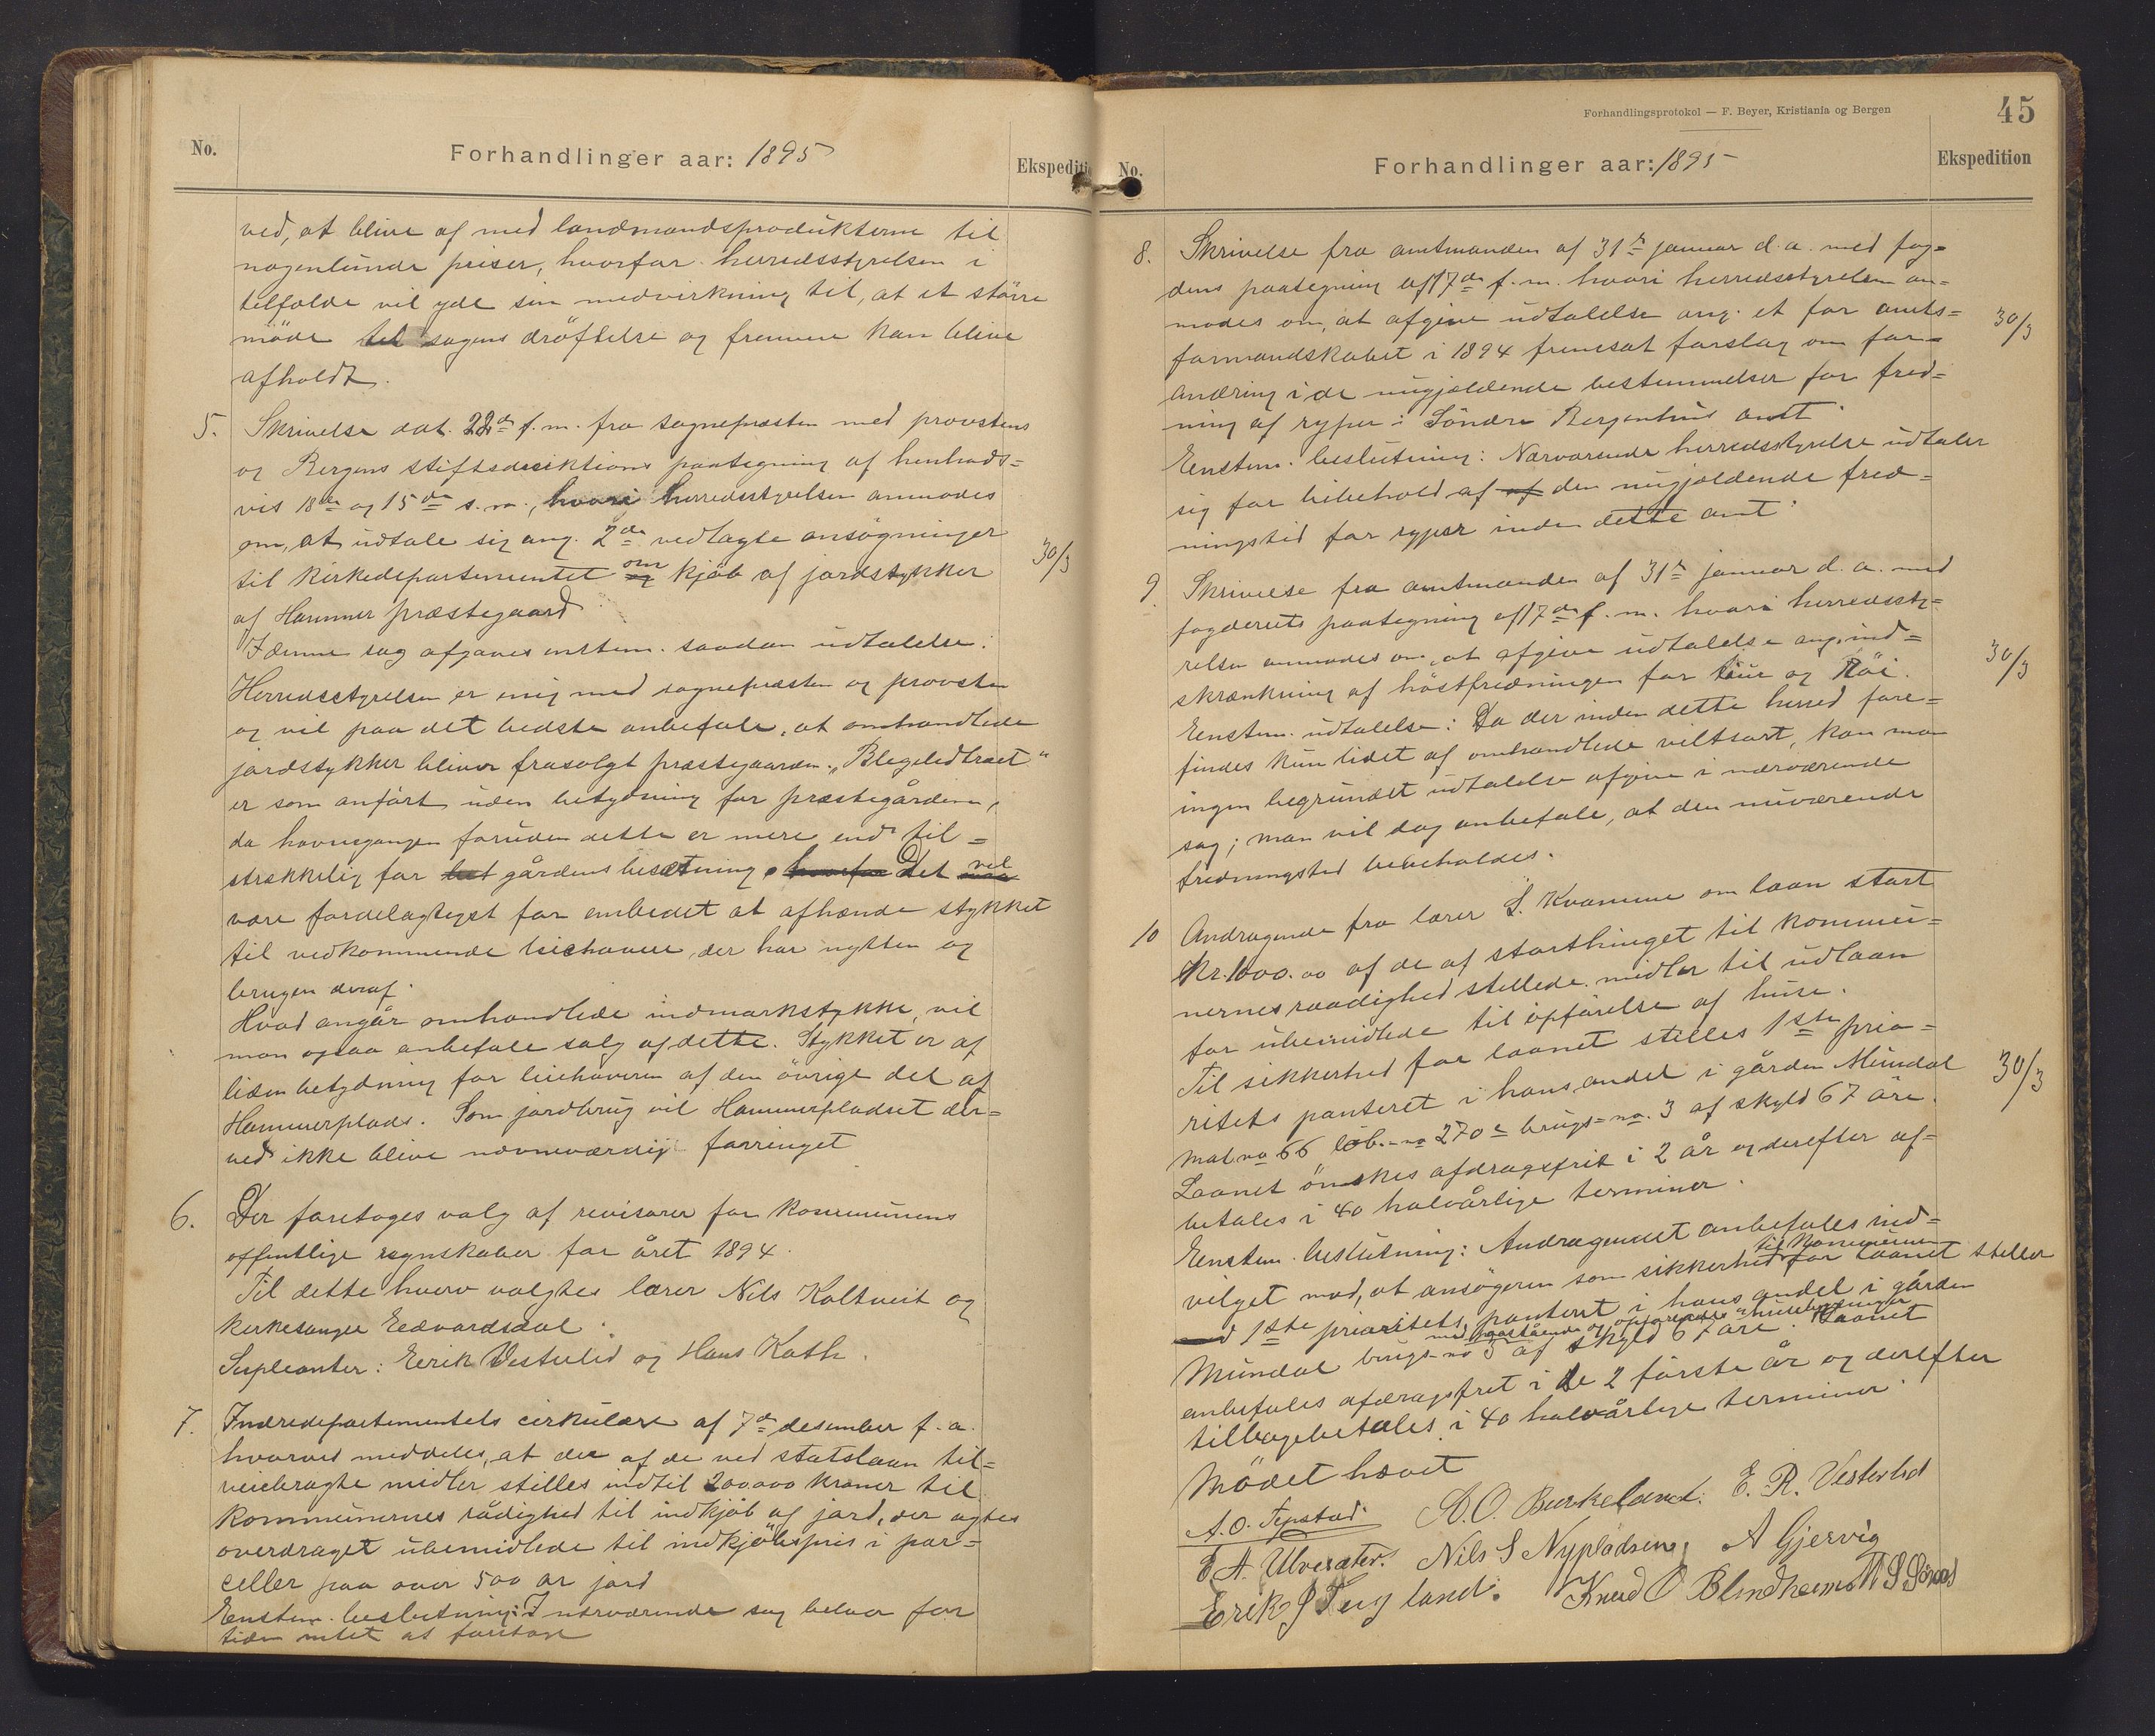 No.
Forhandlinger aar: 1895
Ekspeditio
ved, at blive af med landmandsprodukterne til
nogenlunde priser, hvorfor herredsstyrelsen i
tilfælde vil yde sin medvirkning til, at et større
möde til sagens dröftelse og fremme kan blive
afholdt.
5. Skrivelse dat. 22de f. m. fra sognepræsten med provstens
og Bergens stiftsdirektions paategning af henholds=
vis 18de og 15de s. m., hvori herredsstyrelsen anmodes
om, at udtale sig ang. 2de vedlagte ansögninger
til kirkedepartementet om kjöb af jordstykker
af Hammer præstegaard.
30/3
I denne sag afgaves enstem. saadan udtalelse:
Herredsstyrelsen er enig med sognepræsten og provsten
og vil paa det bedste anbefale, at omhandlede
jordstykker bliver frasolgt præstegaarden. „Blegelidtræet“
er som anført uden betydning for præstegården,
da havnegangen foruden dette er mere end til=
strækkelig for gårdens besætning. Det vil
være fordelagtigst for embedet at afhænde stykket
til vedkommende leiehavere, der har nytten og
brugen deraf.
Hvad angår omhandlede indmarkstykke, vil
man ogsaa anbefale salg af dette. Stykket er af
liden betydning for leiehaveren af den övrige del af
Hammerplads. Som jordbrug vil Hammerpladset der=
ved ikke blive nævneværdig forringet
6. Der foretages valg af revisorer for kommunens
offentlige regnskaber for året 1894.
Til dette hverv valgtes lærer Nils Koltveit og
kirkesanger Eedvardsdal.
Supleanter: Eerik Vesterlid og Hans Kath.
7. Indredepartementets cirkulære af 7de desember f. a.
hvorved meddeles, at der af de ved statslaan til=
veiebragte midler stilles indtil 200,000 kroner til
kommunernes rådighed til indkjöb af jord, der agtes
overdraget ubemidlede til indkjöbspris i par=
celler paa over 500 ar jord
Eenstem. beslutning: I nærværende sag belaver for
tiden intet at foretage
Forhandlingsprotokol — F. Beyer, Kristiania og Bergen
45
No.
Forhandlinger aar: 1895
Ekspedition
8. Skrivelse fra amtmanden af 31te januar d. a. med fog=
dens paategning af 17de f. m. hvori herredsstyrelsen an=
modes om, at afgive udtalelse ang. et for amts=
formandskabet i 1894 fremsat forslag om for=
andring i de nugjældende bestemmelser for fred=
ning af ryper i Söndre Bergenhus amt.
30/3
Eenstem. beslutning: Nærværende herredsstyrelse udtaler
sig for bibehold af af den nugjældende fred=
ningstid for ryper inden dette amt.
9. Skrivelse fra amtmanden af 31te januar d. a. med
fogderiets paategning af 17de f. m. hvori herredssty=
relsen anmodes om, at afgive udtalelse ang. ind=
skrænkning af höstfredningen for tiur og Röi.
30/3
Eenstem. udtalelse: Da der inden dette herred fore=
findes kun lidet af omhandlede viltsort, kan man
ingen begrundet udtalelse afgive i nærværende
sag; man vil dog anbefale, at den nuværende
fredningstid bibeholdes.
10 Andragende fra lærer S. Kvamme om laan stort
Kr. 1000.00 af de af storthinget til kommu=
nernes raadighed stellede midler til udlaan
for ubemidlede til opførelse af huse.
Til sikkerhed for laanet stilles 1ste prio=
ritets panteret i hans andel i gården Mundal
mat no 66 löb.-no 270e brugs-no. 3 af skyld 67 öre.
30/3
Laanet önskes afdragsfrit i 2 år og derefter af=
betales i 40 halvårlige terminer.
Eenstem. beslutning: Andragendet anbefales ind=
vilget mod, at ansögeren som sikkerhed til kommunen for laanet stiller
1ste prioritets panteret i hans andel i gården
Mundal brugs-no 3 af skyld 67 öre. med paastående og opförendes husebygninger Laanet
anbefales afdragsfrit i de 2 förste år og derefter
tilbagebetales i 40 halvårlige terminer.
Mödet hævet
A. O. Tepstad. A. O. Burkeland. E. R. Vesterlid
E A. Ulvesæter. Nils S Nypladsen, A Gjervig
Erik J Tugland. Knud O Blindheim